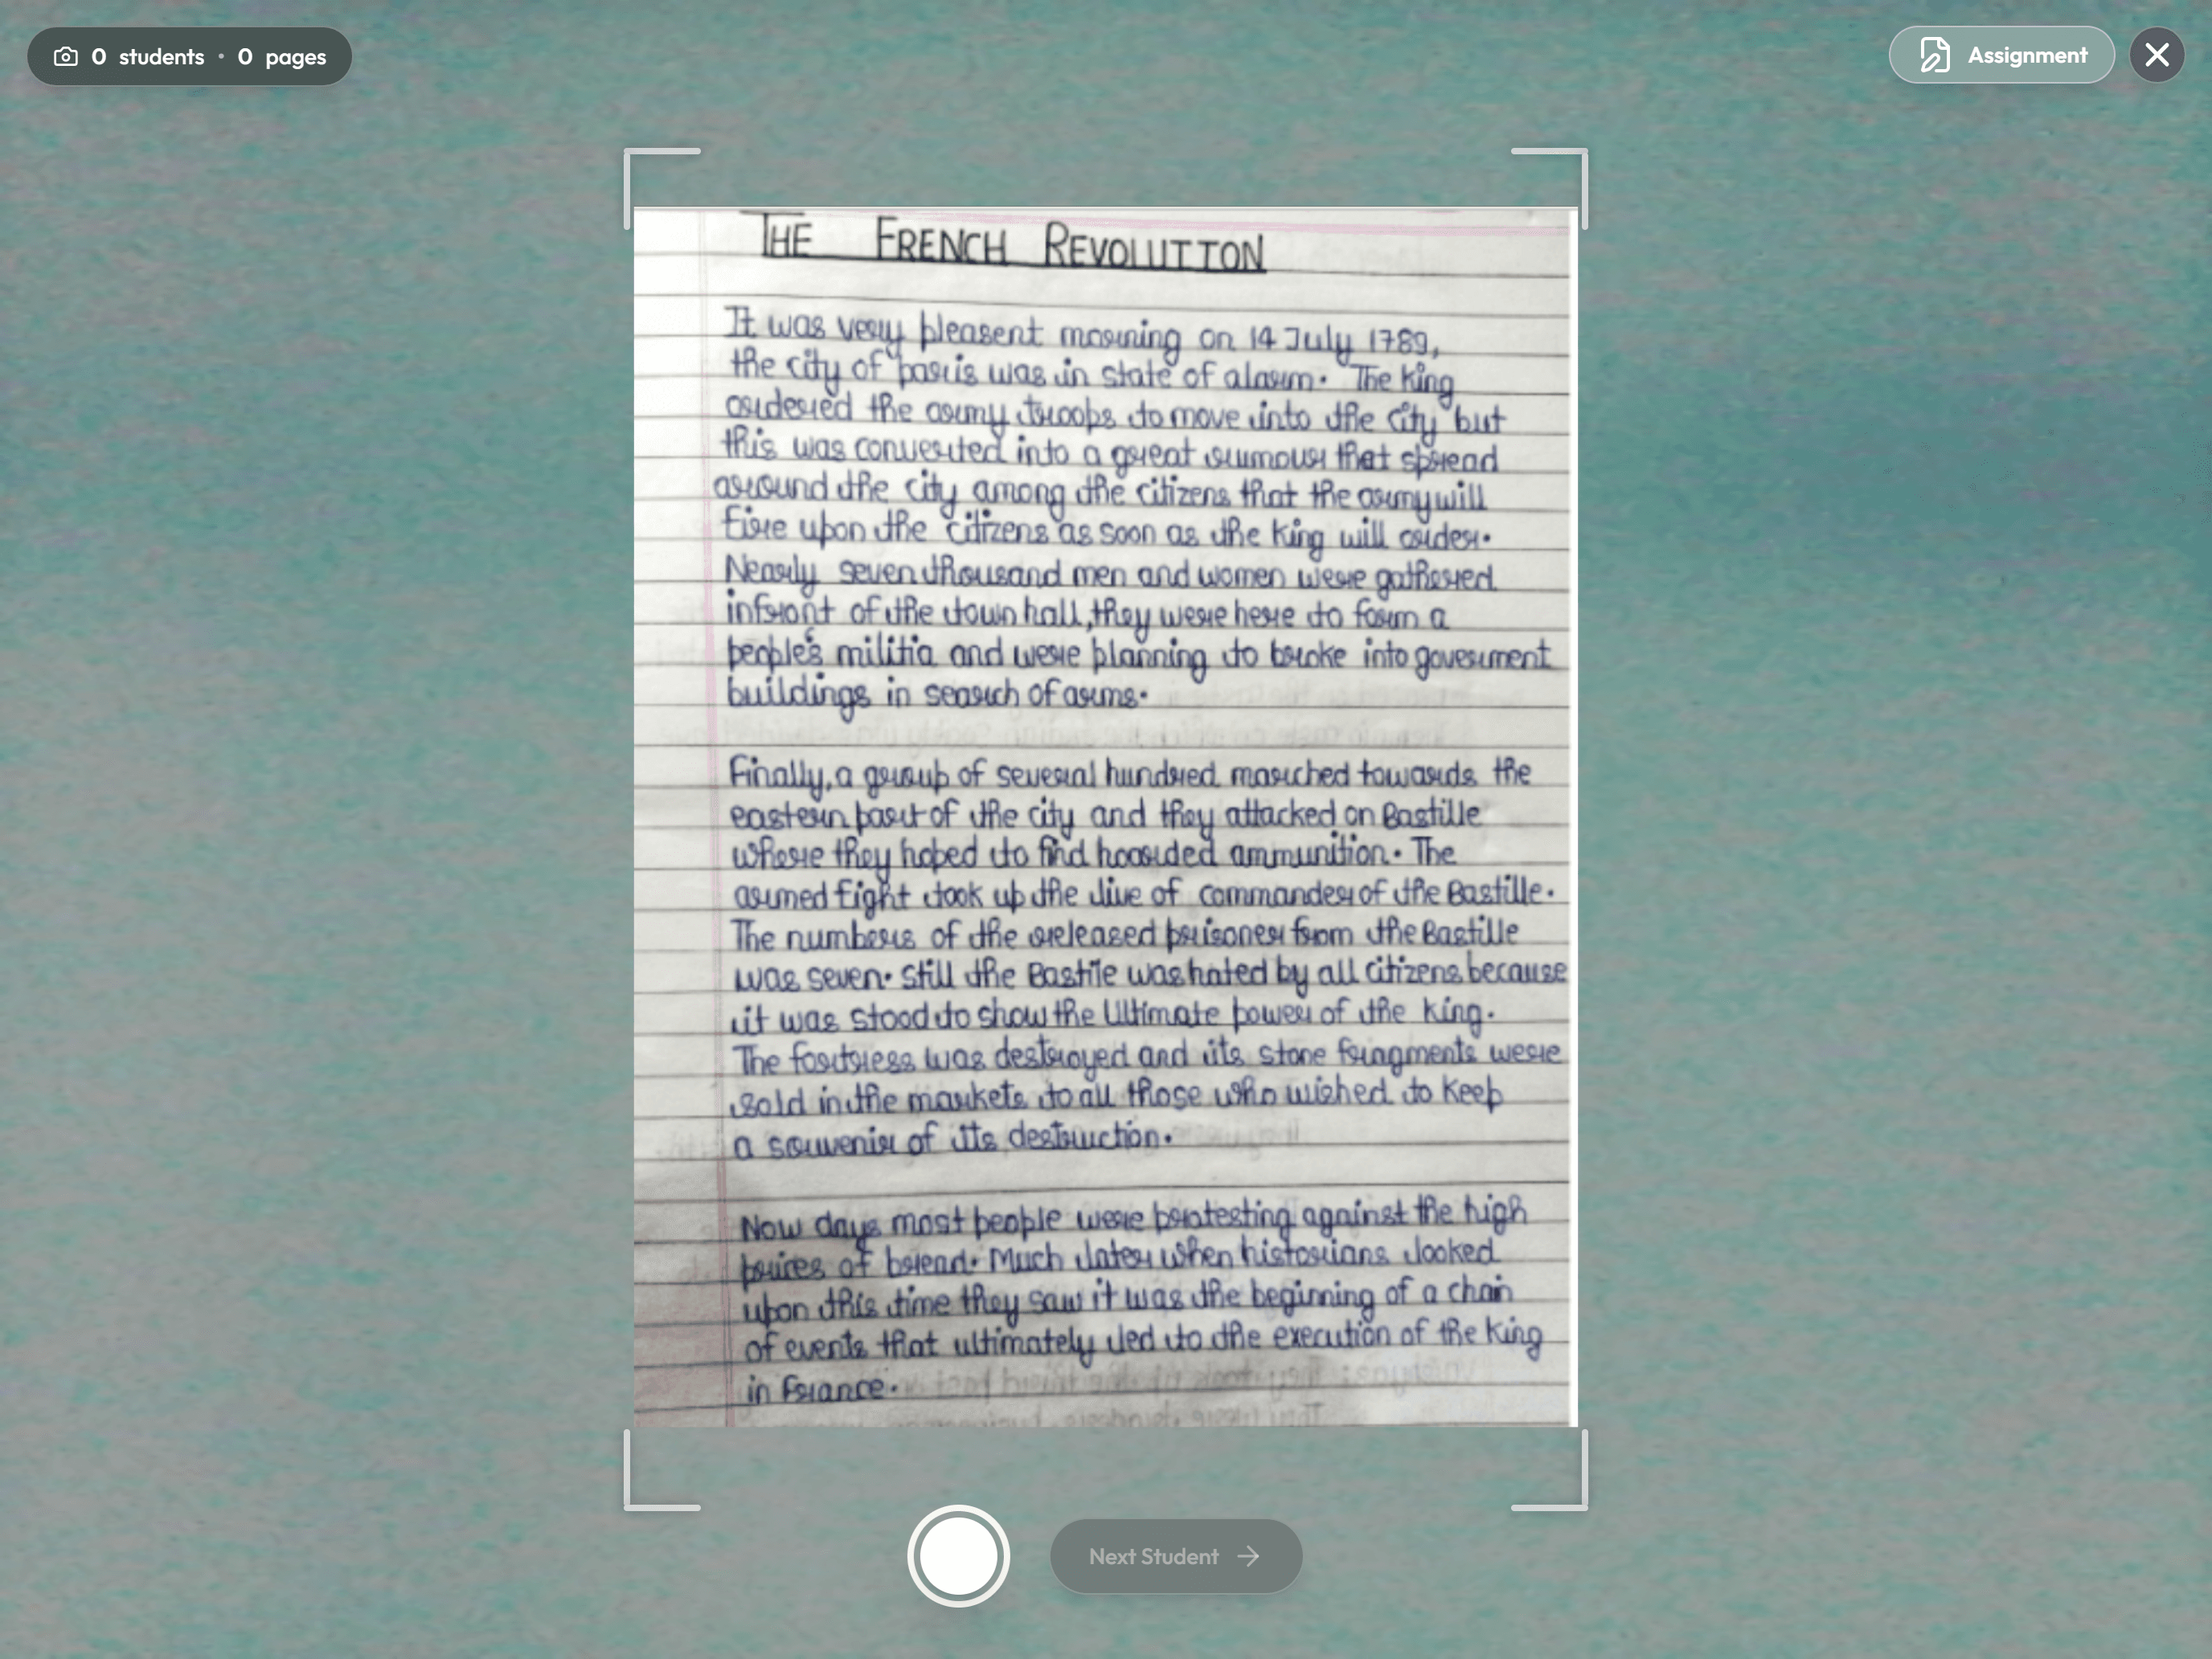 0 students • 0 pages
Assignment
THE FRENCH REVOLUTION
It was very pleasent morning on 14 July 1789,
the city of paris was in state of alarm. The King
ordered the army troops to move into the city but
this was converted into a great rumour that spread
around the city among the citizens that the army will
fire upon the citizens as soon as the King will order.
Nearly seven thousand men and women were gathered
infront of the town hall, they were here to form a
people's militia and were planning to broke into goverment
buildings in search of arms.
Finally, a group of several hundred marched towards the
eastern part of the city and they attacked on Bastille
where they hoped to find hoarded ammunition. The
armed fight took up the live of commander of the Bastille.
The numbers of the released prisoner from the Bastille
was seven. Still the Bastile was hated by all citizens because
it was stood to show the Ultimate power of the King.
The fortress was destroyed and its stone fragments were
sold in the markets to all those who wished to keep
a souvenir of its destruction.
Now days most people were protesting against the high
prices of bread. Much later when historians looked
upon this time they saw it was the beginning of a chain
of events that ultimately led to the execution of the King
in France.
Next Student